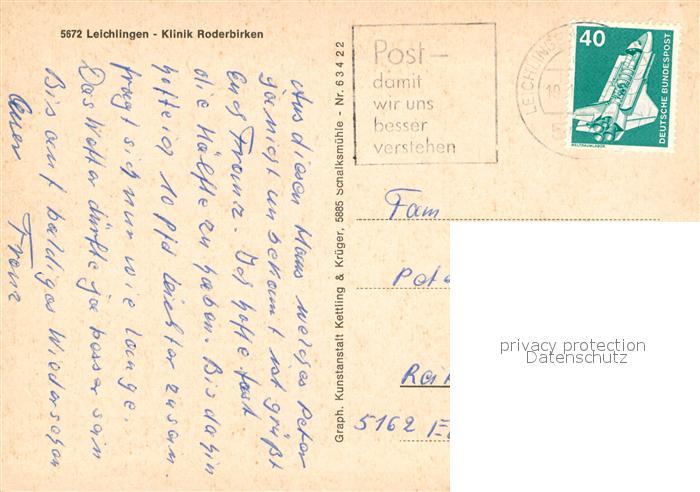 5672 Leichlingen - Klinik Roderbirken
Aus diesem Haus welches Peter
ja nicht unbekannt ist grüßt
Euch Franz. Ich hoffe fast
die Hälfte zu haben. Bis dahin
hoffe ich 10 Pfd leichter zu sein
fragt sich nur wie lange.
Das Wetter dürfte ja besser sein
Bis auf baldiges Wiedersehen
Euer Franz
Graph. Kunstanstalt Kettling & Krüger, 5885 Schalksmühle - Nr. 63422
Post –
damit
wir uns
besser
verstehen
40
DEUTSCHE BUNDESPOST
WELTRAUMLABOR
Fam
Pet
Rei
5162
privacy protection
Datenschutz